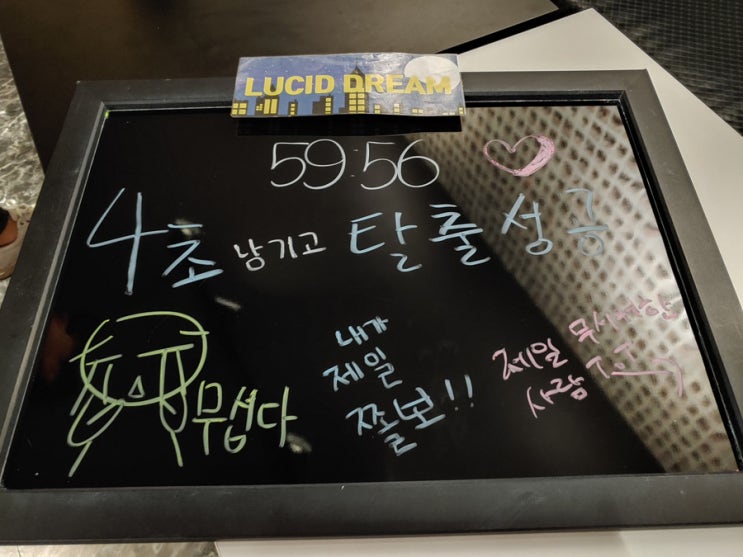 LUCID DREAM
59:56
4초 남기고 탈출 성공
무섭다
내가
제일
쫄보!!
제일 무서워한
사람